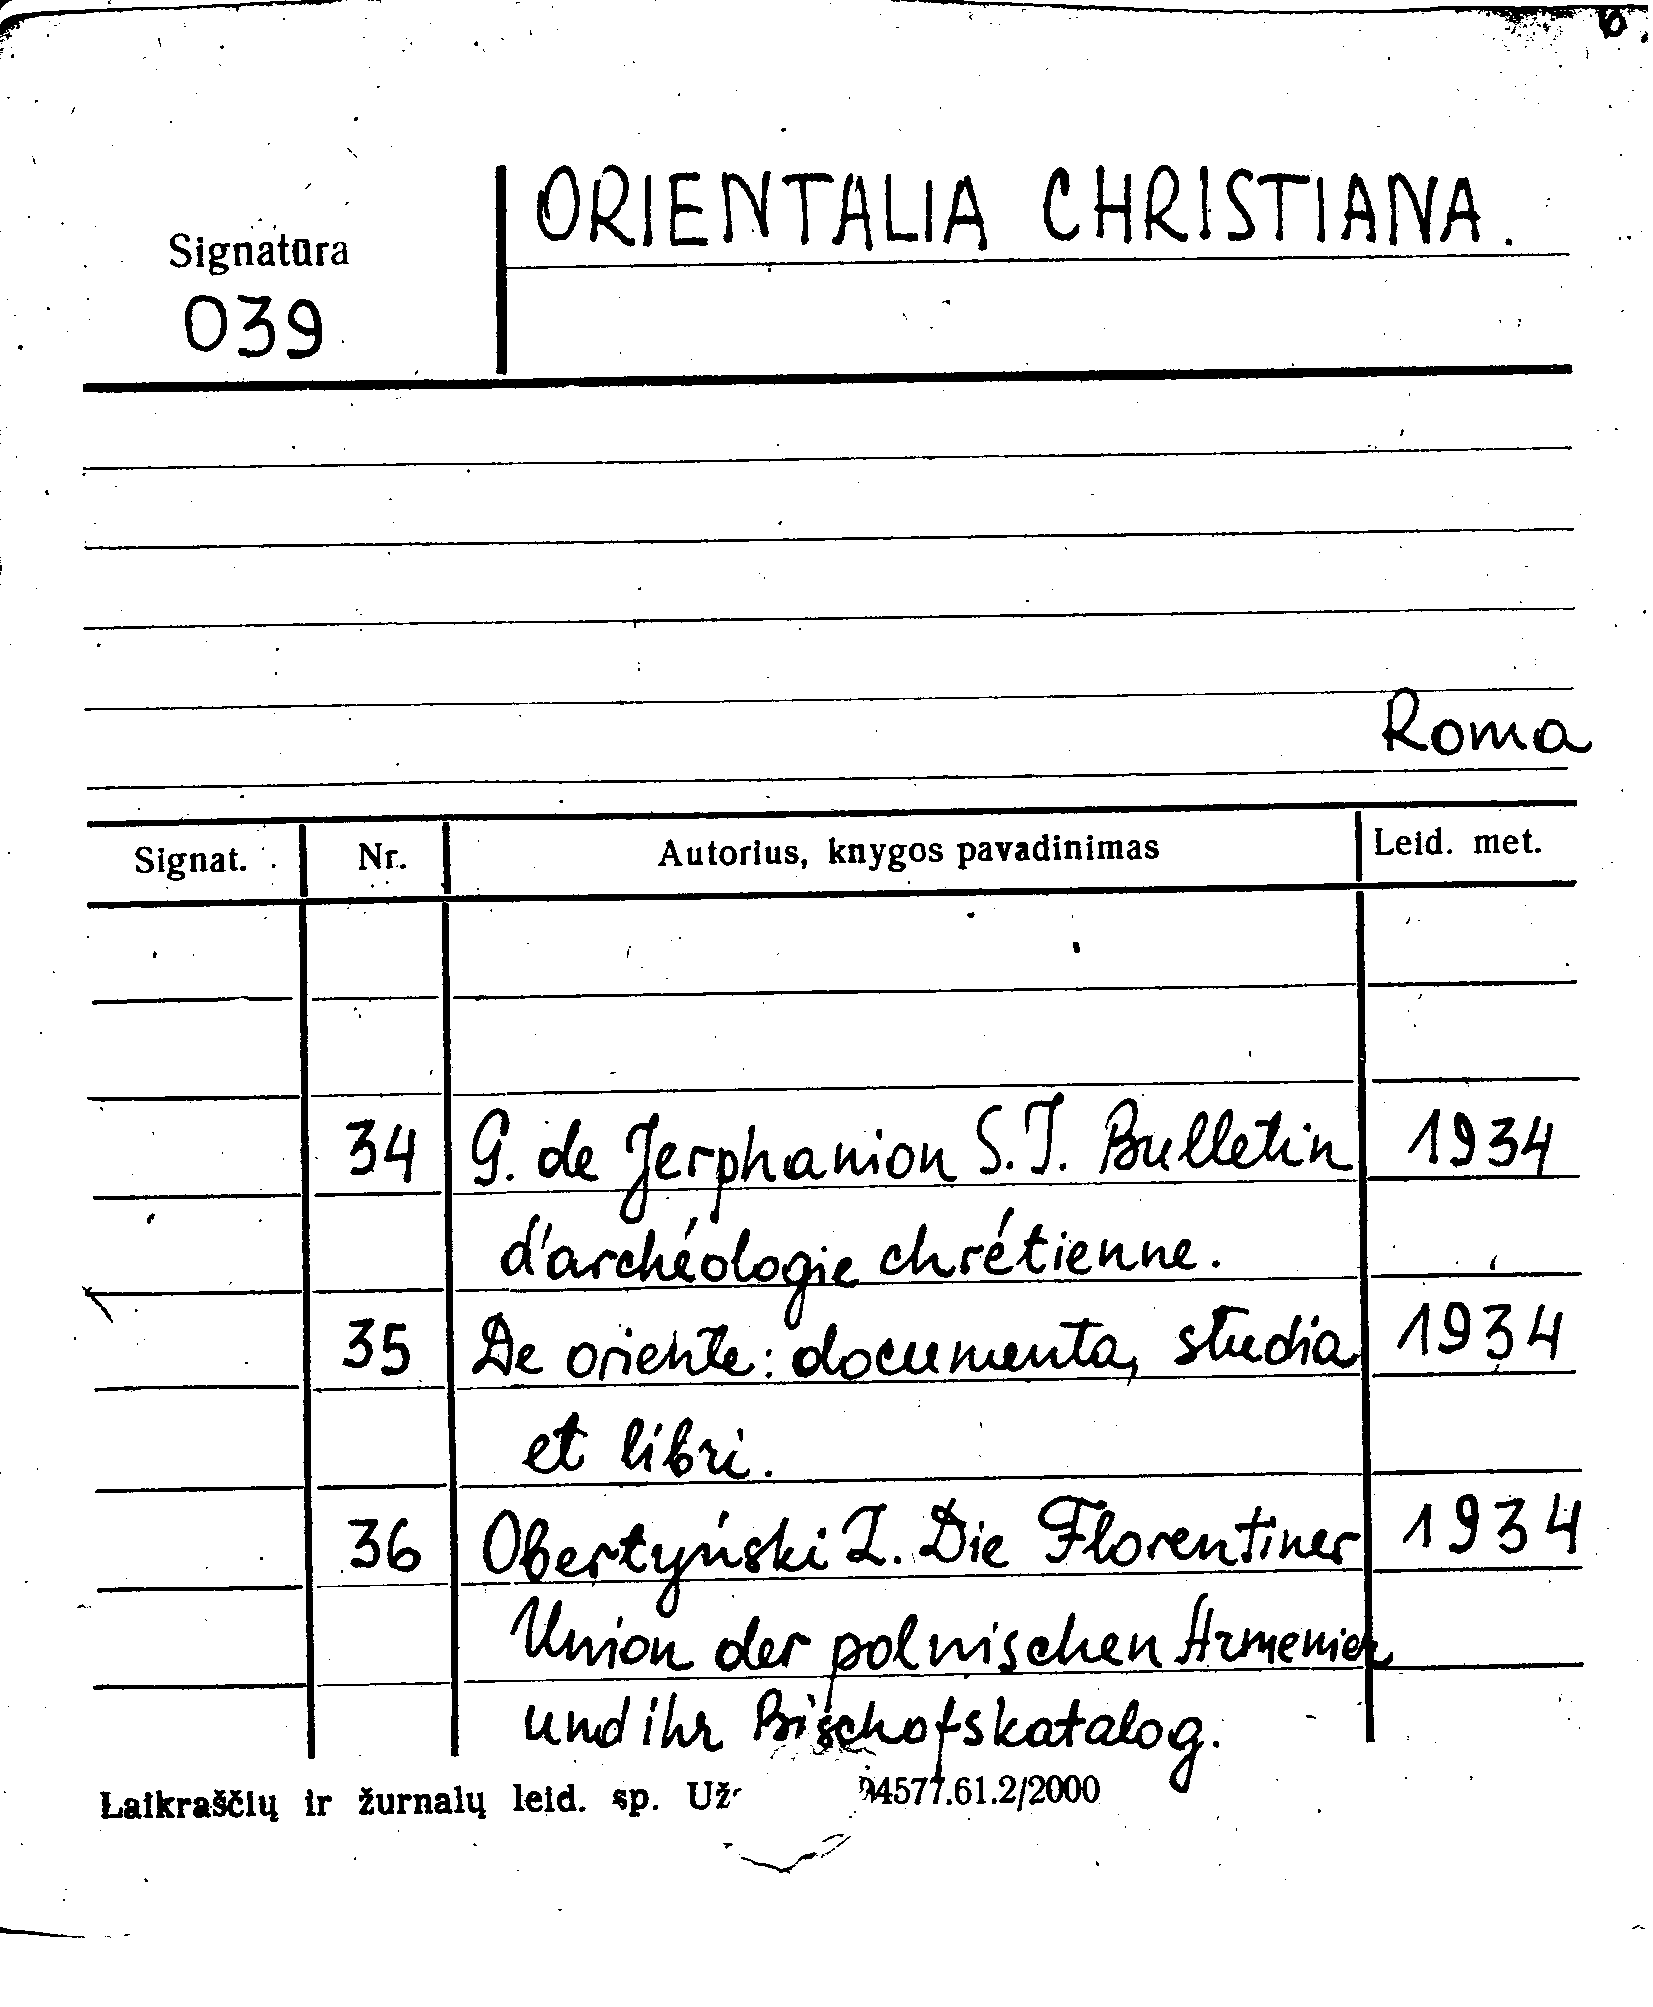 6.
ORIENTALIA CHRISTIANA.
Signatūra
039
Roma
Signat. Nr. Autorius, knygos pavadinimas Leid. met.
34 G. de Jerphanion S.J. Bulletin 1934
d'archéologie chrétienne.
35 De oriente: documenta, studia 1934
et libri.
36 Obertyński Z. Die Florentiner 1934
Union der polnischen Armenier
und ihr Bischofskatalog.
Laikraščių ir žurnalų leid. sp. 4577.61.2/2000